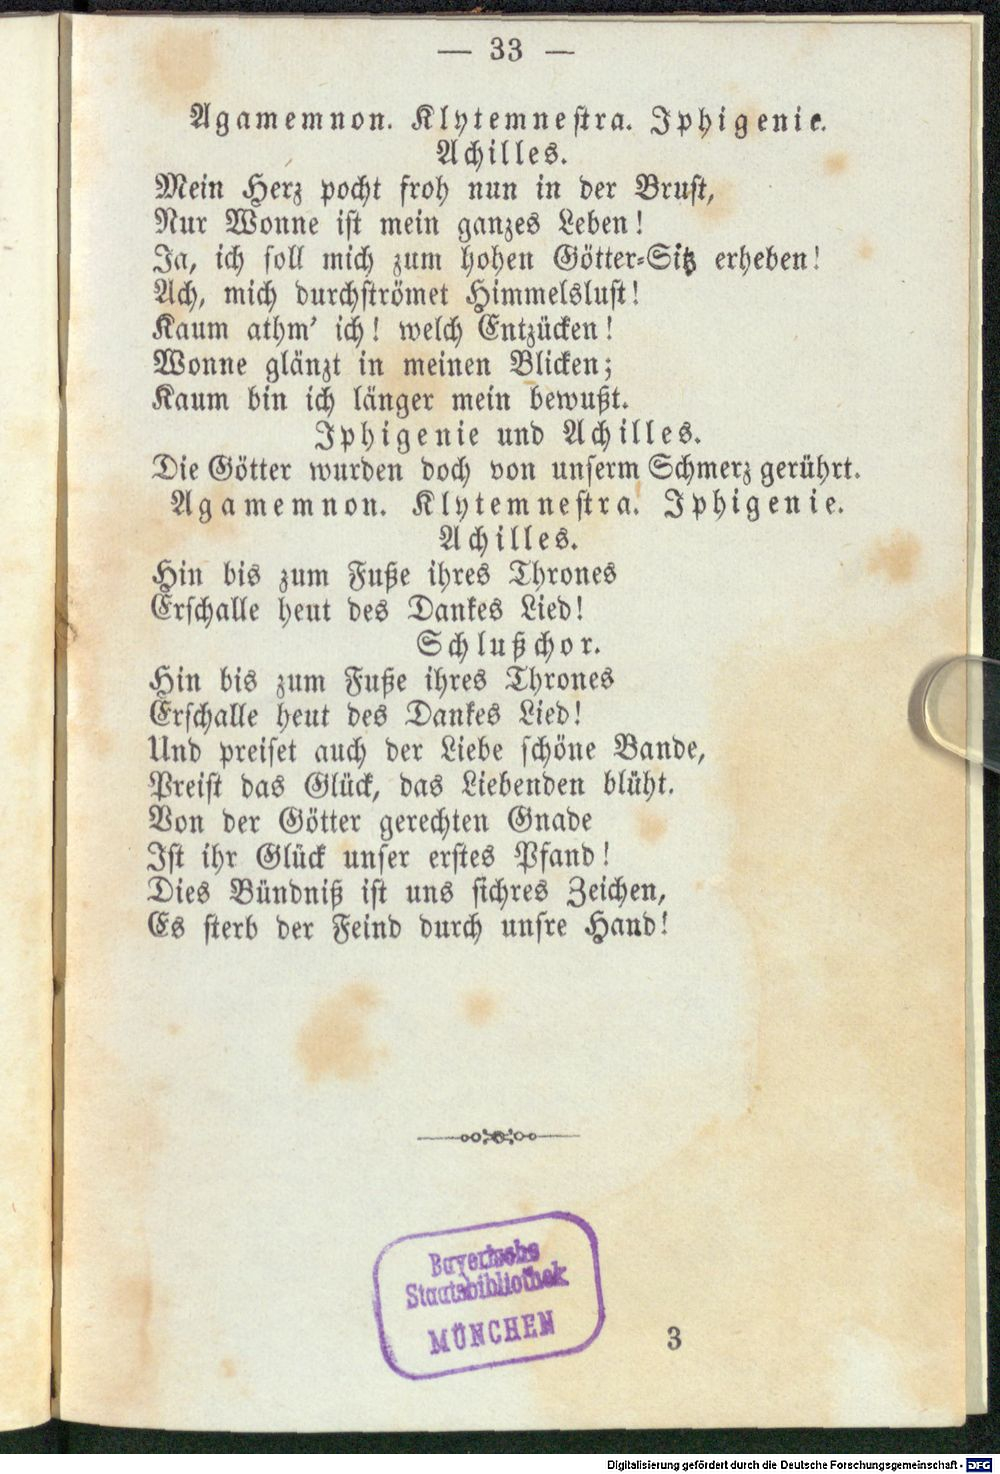 — 33 —
Agamemnon. Klytemnestra. Iphigenie.
Achilles.
Mein Herz pocht froh nun in der Brust,
Nur Wonne ist mein ganzes Leben!
Ja, ich soll mich zum hohen Götter-Sitz erheben!
Ach, mich durchströmet Himmelslust!
Kaum athm' ich! welch Entzücken!
Wonne glänzt in meinen Blicken;
Kaum bin ich länger mein bewußt.
Iphigenie und Achilles.
Die Götter wurden doch von unserm Schmerz gerührt.
Agamemnon. Klytemnestra. Iphigenie.
Achilles.
Hin bis zum Fuße ihres Thrones
Erschalle heut des Dankes Lied!
Schlußchor.
Hin bis zum Fuße ihres Thrones
Erschalle heut des Dankes Lied!
Und preiset auch der Liebe schöne Bande,
Preist das Glück, das Liebenden blüht.
Von der Götter gerechten Gnade
Ist ihr Glück unser erstes Pfand!
Dies Bündniß ist uns sichres Zeichen,
Es sterb der Feind durch unsre Hand!
Bayerische
Staatsbibliothek
MÜNCHEN
3
Digitalisierung gefördert durch die Deutsche Forschungsgemeinschaft - DFG